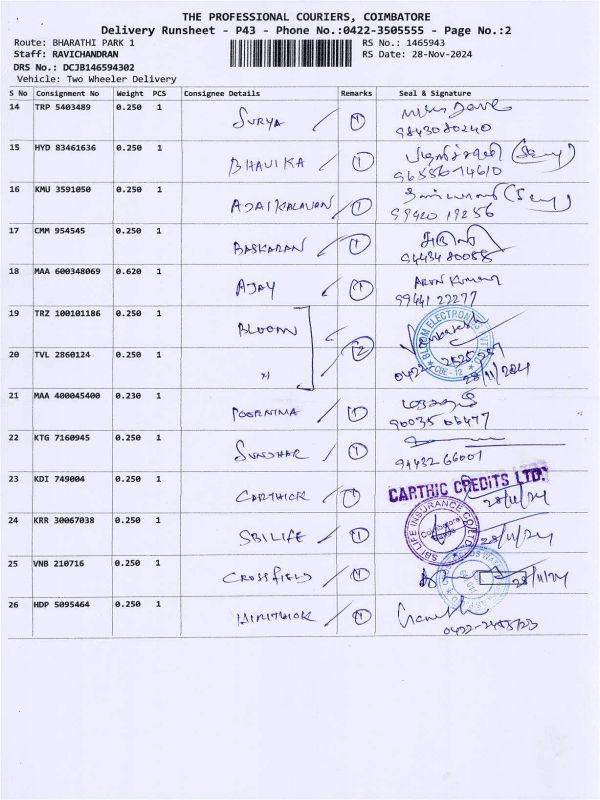 THE PROFESSIONAL COURIERS, COIMBATORE
Delivery Runsheet - P43 - Phone No.:0422-3505555 - Page No.:2
Route: BHARATHI PARK 1 RS No.: 1465943
Staff: RAVICHANDRAN RS Date: 28-Nov-2024
DRS No.: DCJB146594302
Vehicle: Two Wheeler Delivery
S No Consignment No Weight PCS Consignee Details Remarks Seal & Signature
14 TRP 5403489 0.250 1 SURYA 1
9843080240
15 HYD 83461636 0.250 1 BHAVIKA 1
96556 74610
16 KMU 3591050 0.250 1 ADAIKALAVAN 1
99420 19256
17 CMM 954545 0.250 1 BASKARAN 1
94434 80088
18 MAA 600348069 0.620 1 AJAY 1 Arun Kumar
99441 22277
19 TRZ 100101186 0.250 1 BLOOM
20 TVL 2860124 0.250 1 " 2 BLOOM ELECTRONICS CBE - 12
0422 28/11/2024
21 MAA 400045400 0.230 1 POORNIMA 1
90035 06477
22 KTG 7160945 0.250 1 SUNDHAR 1
94432 66001
23 KDI 749004 0.250 1 CARTHICK 1 CARTHIC CREDITS LTD.
28/11/24
24 KRR 30067038 0.250 1 SBI LIFE 1 SBI LIFE INSURANCE CO. LTD. Coimbatore
28/11/24
25 VNB 210716 0.250 1 CROSSFIELD 1 28/11/24
26 HDP 5095464 0.250 1 HIRITHICK 1 Ganesh